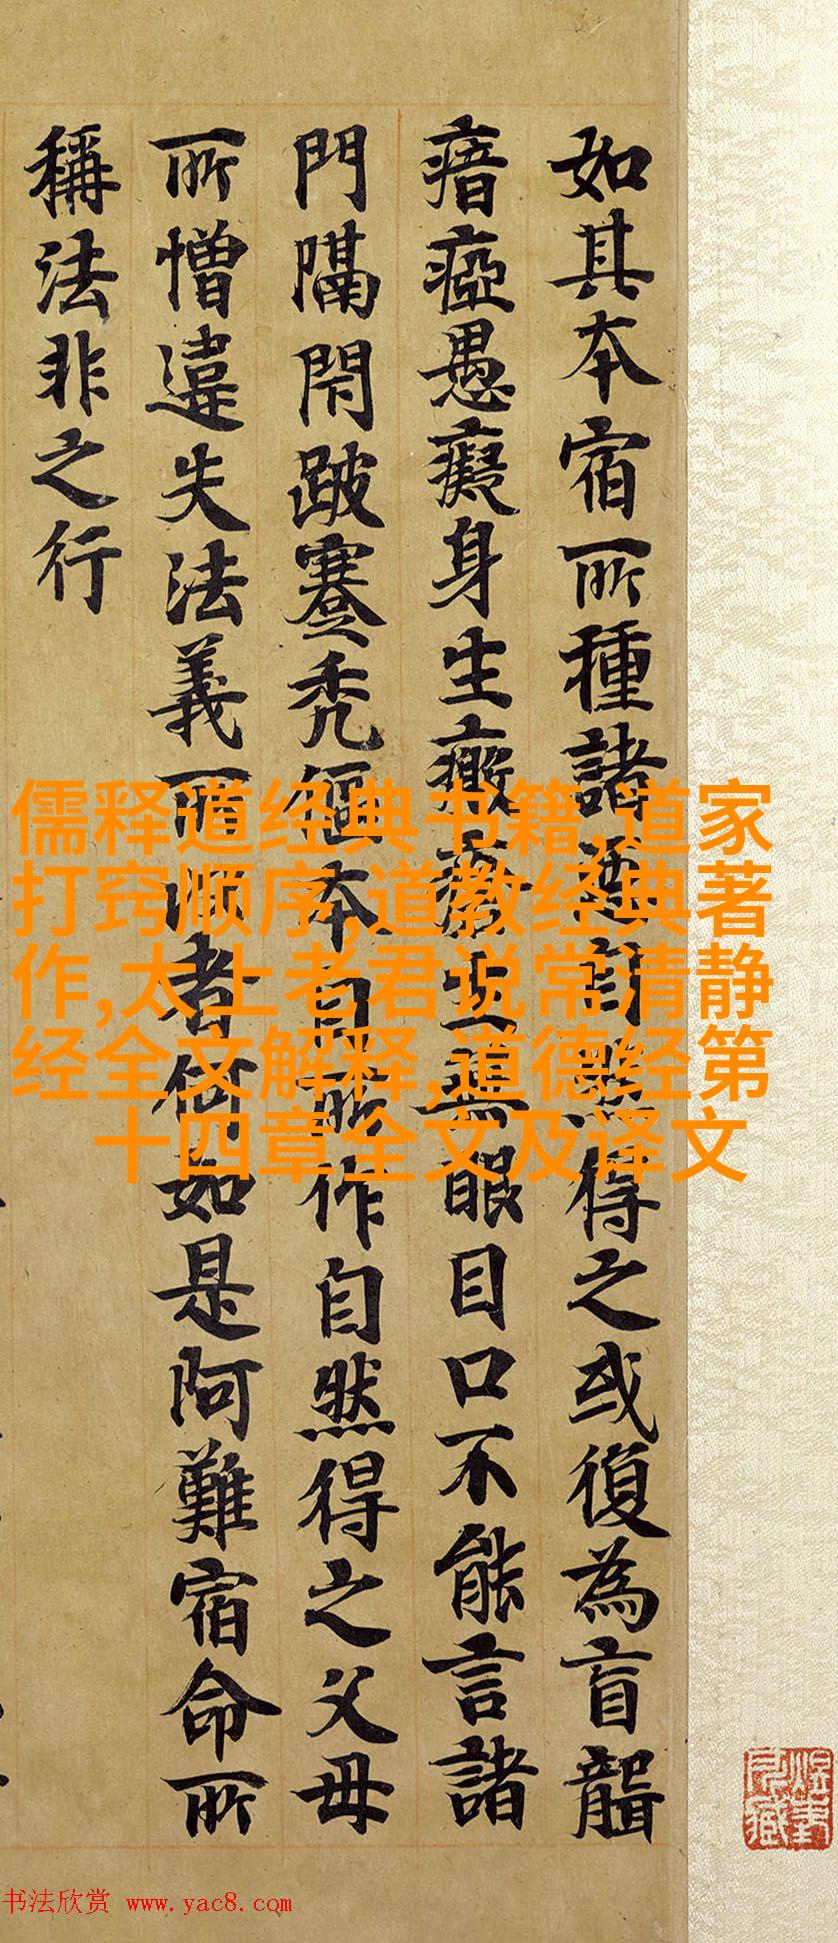 如其本宿所種諸惡自然得之或復為盲聾
瘖瘂愚癡身生瘡生無眼目口不能言諸
門隔閉跛蹇禿傴本自所作自然得之父母
所憎違失法義所以者何如是阿難宿命所
稱法非之行
儒释道经典书籍,道家
打窍顺序,道教经典著
作,太上老君说常清静
经全文解释,道德经第
十四章全文及译文
书法欣赏 www.yac8.com